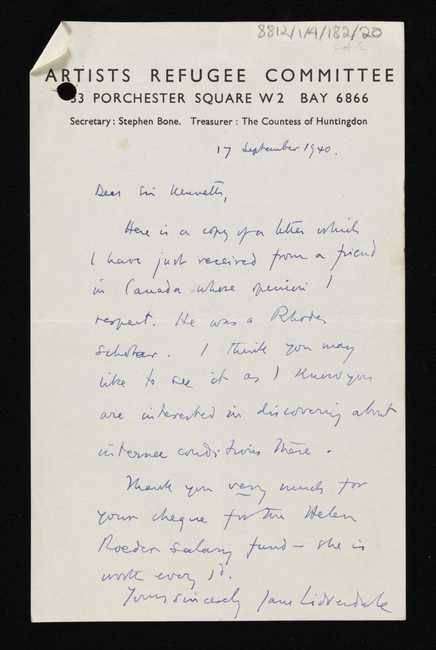 8812/1/4/182/20
ARTISTS REFUGEE COMMITTEE
33 PORCHESTER SQUARE W2 BAY 6866
Secretary: Stephen Bone. Treasurer: The Countess of Huntingdon
17 September 1940.
Dear Sir Kenneth,
Here is a copy of a letter which
I have just received from a friend
in Canada whose opinion I
respect. He was a Rhodes
Scholar. I think you may
like to see it as I know you
are interested in discovering about
internee conditions there.
Thank you very much for
your cheque for the Helen
Roeder salary fund – she is
worth every 1d.
Yours sincerely Jane Lidderdale